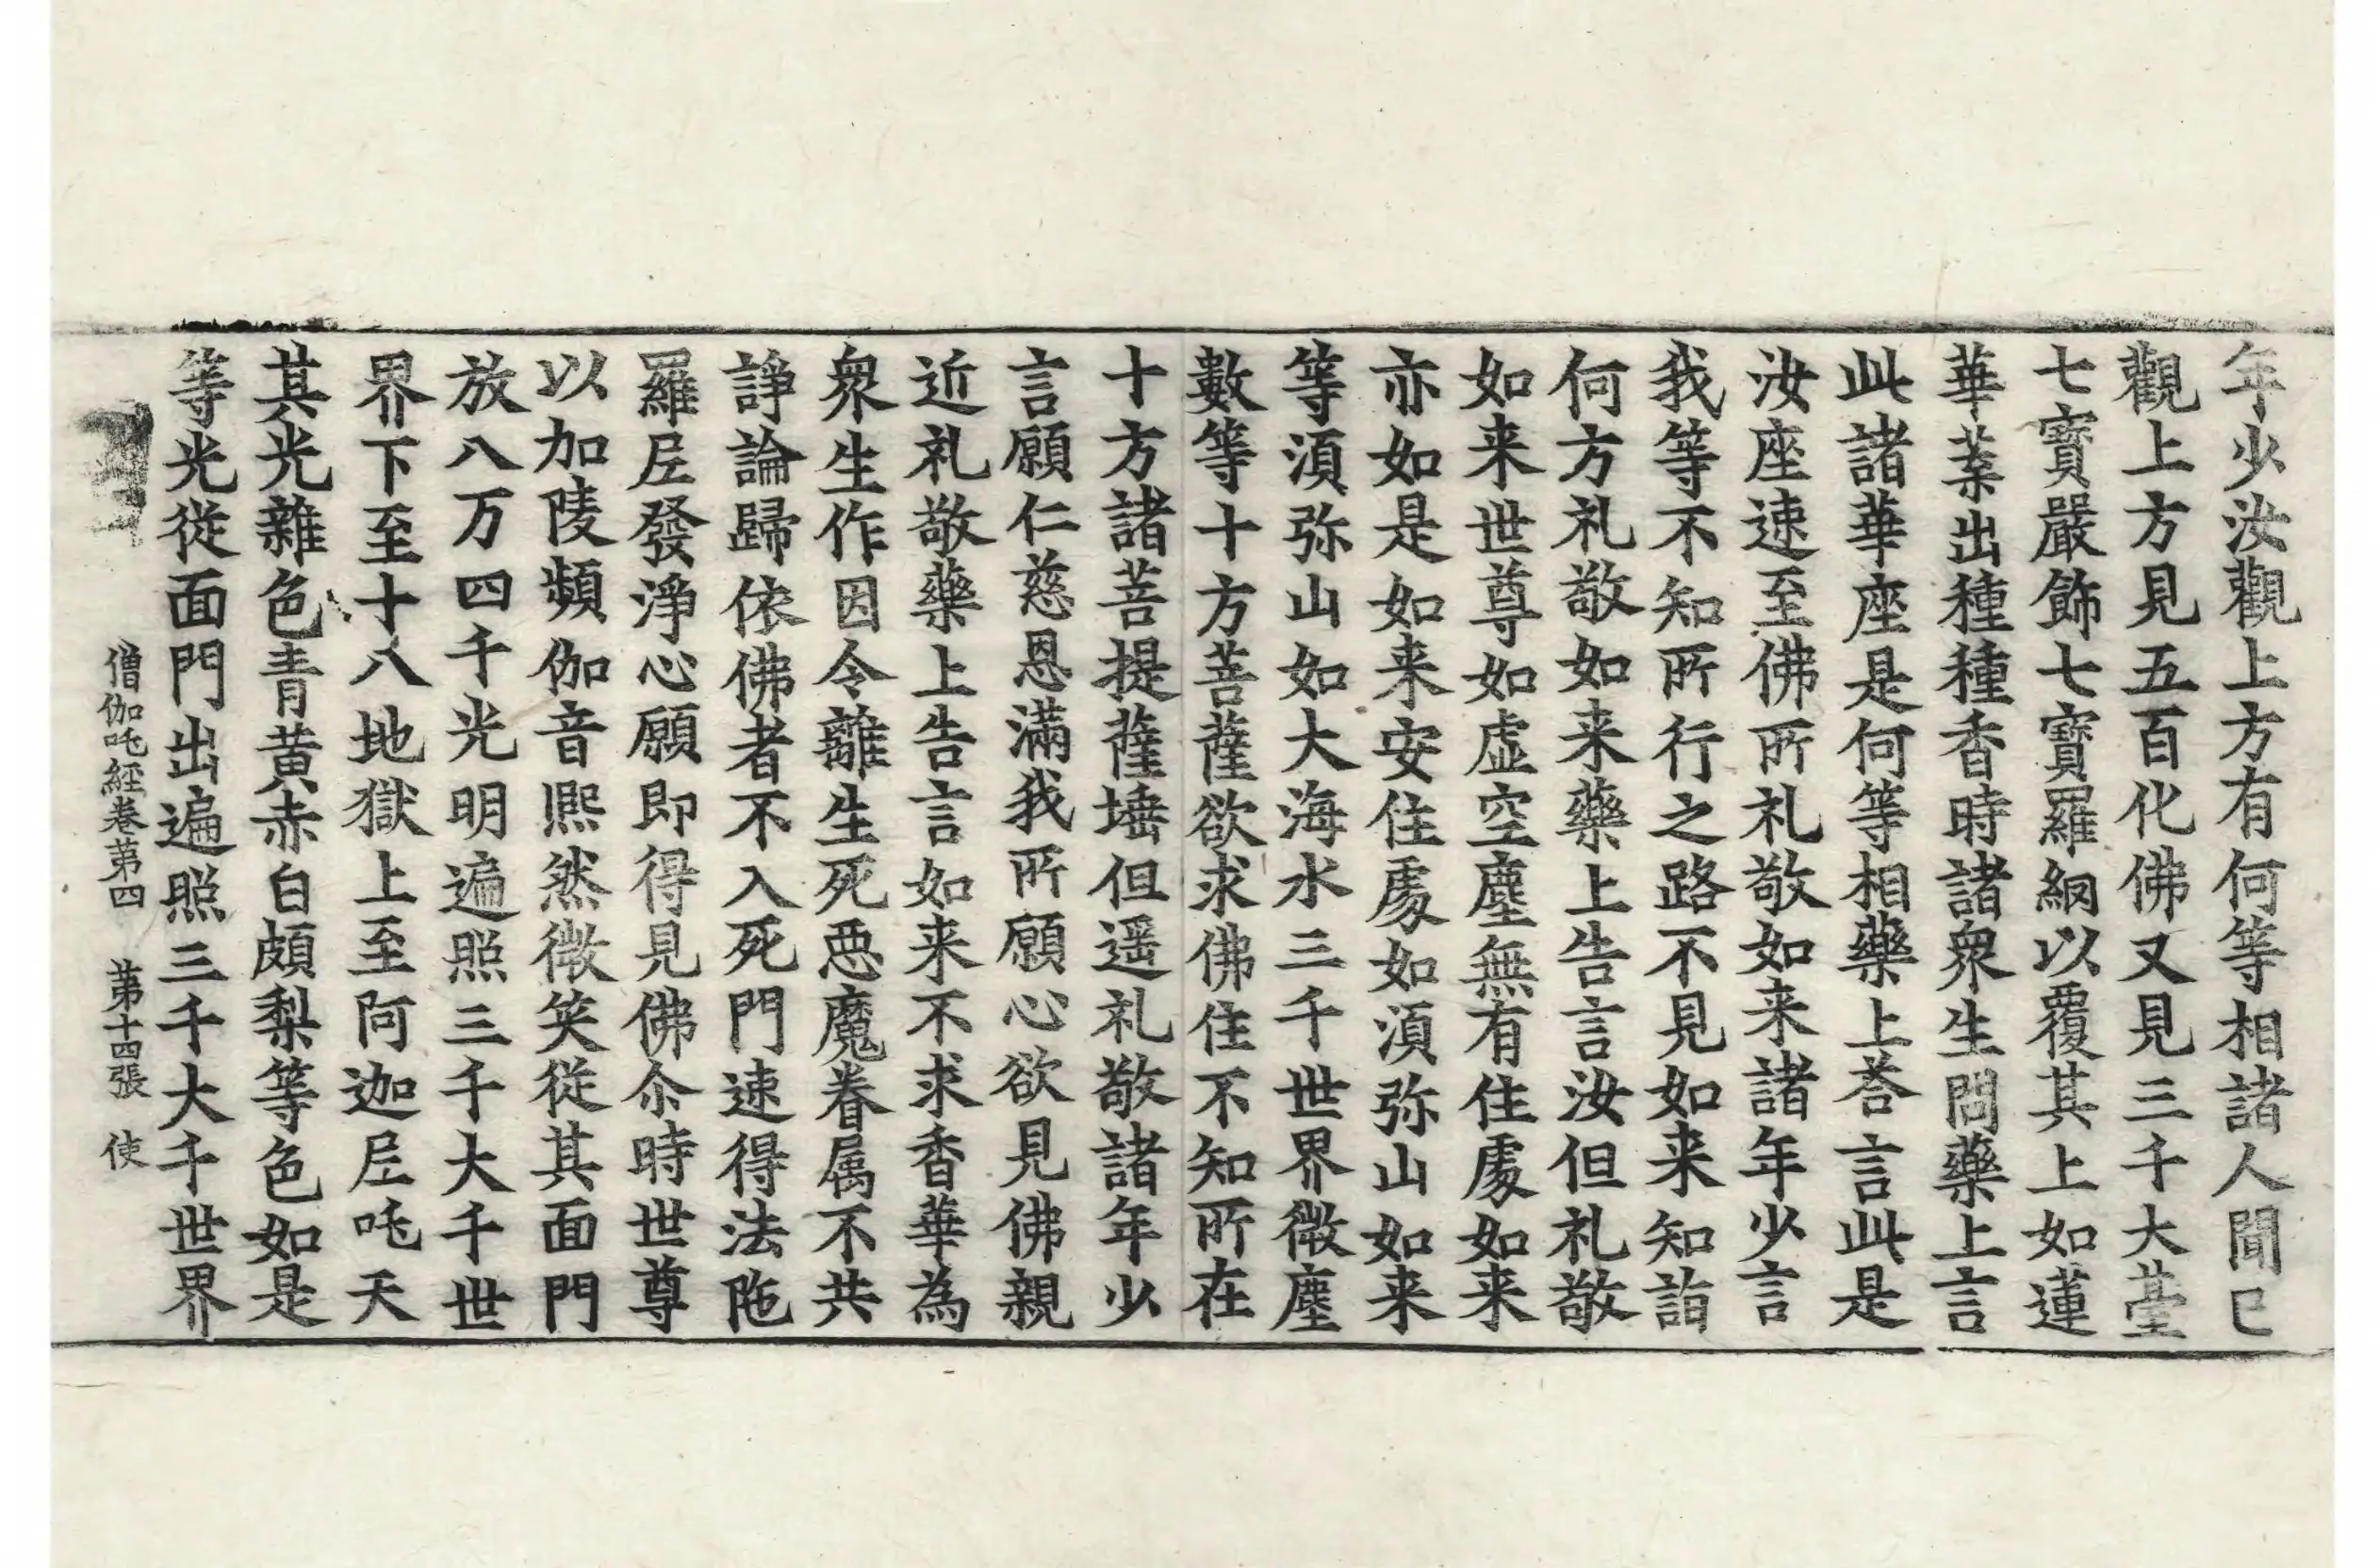 年少汝觀上方有何等相諸人聞已
觀上方見五百化佛又見三千大臺
七寶嚴飾七寶羅網以覆其上如蓮
華葉出種種香時諸衆生問藥上言
此諸華座是何等相藥上荅言此是
汝座速至佛所礼敬如来諸年少言
我等不知所行之路不見如来知詣
何方礼敬如来藥上告言汝但礼敬
如来世尊如虚空塵無有住處如来
亦如是如来安住處如湏弥山如来
等湏弥山如大海水三千世界微塵
數等十方菩薩欲求佛住不知所在
十方諸菩提薩埵但遥礼敬諸年少
言願仁慈恩滿我所願心欲見佛親
近礼敬藥上告言如来不求香華為
衆生作因令離生死惡魔眷属不共
諍論歸依佛者不入死門速得法陁
羅尼發淨心願即得見佛尒時世尊
以加陵頻伽音熈然微笑従其面門
放八万四千光明遍照三千大千世
界下至十八地獄上至阿迦尼吒天
其光雜色青黄赤白頗梨等色如是
等光従面門出遍照三千大千世界
僧伽吒經卷苐四 苐十四張 使